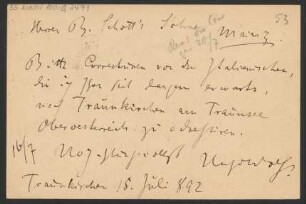 53
Herrn B. Schott's Söhne
Mainz.
Bitte Correcturen von den Italienischen,
die ich schon seit langem erwarte,
nach Traunkirchen am Traunsee
Oberoesterreich zu adressiren.
16/7 Hochachtungsvollst Hugo Wolf
Traunkirchen 15. Juli 892